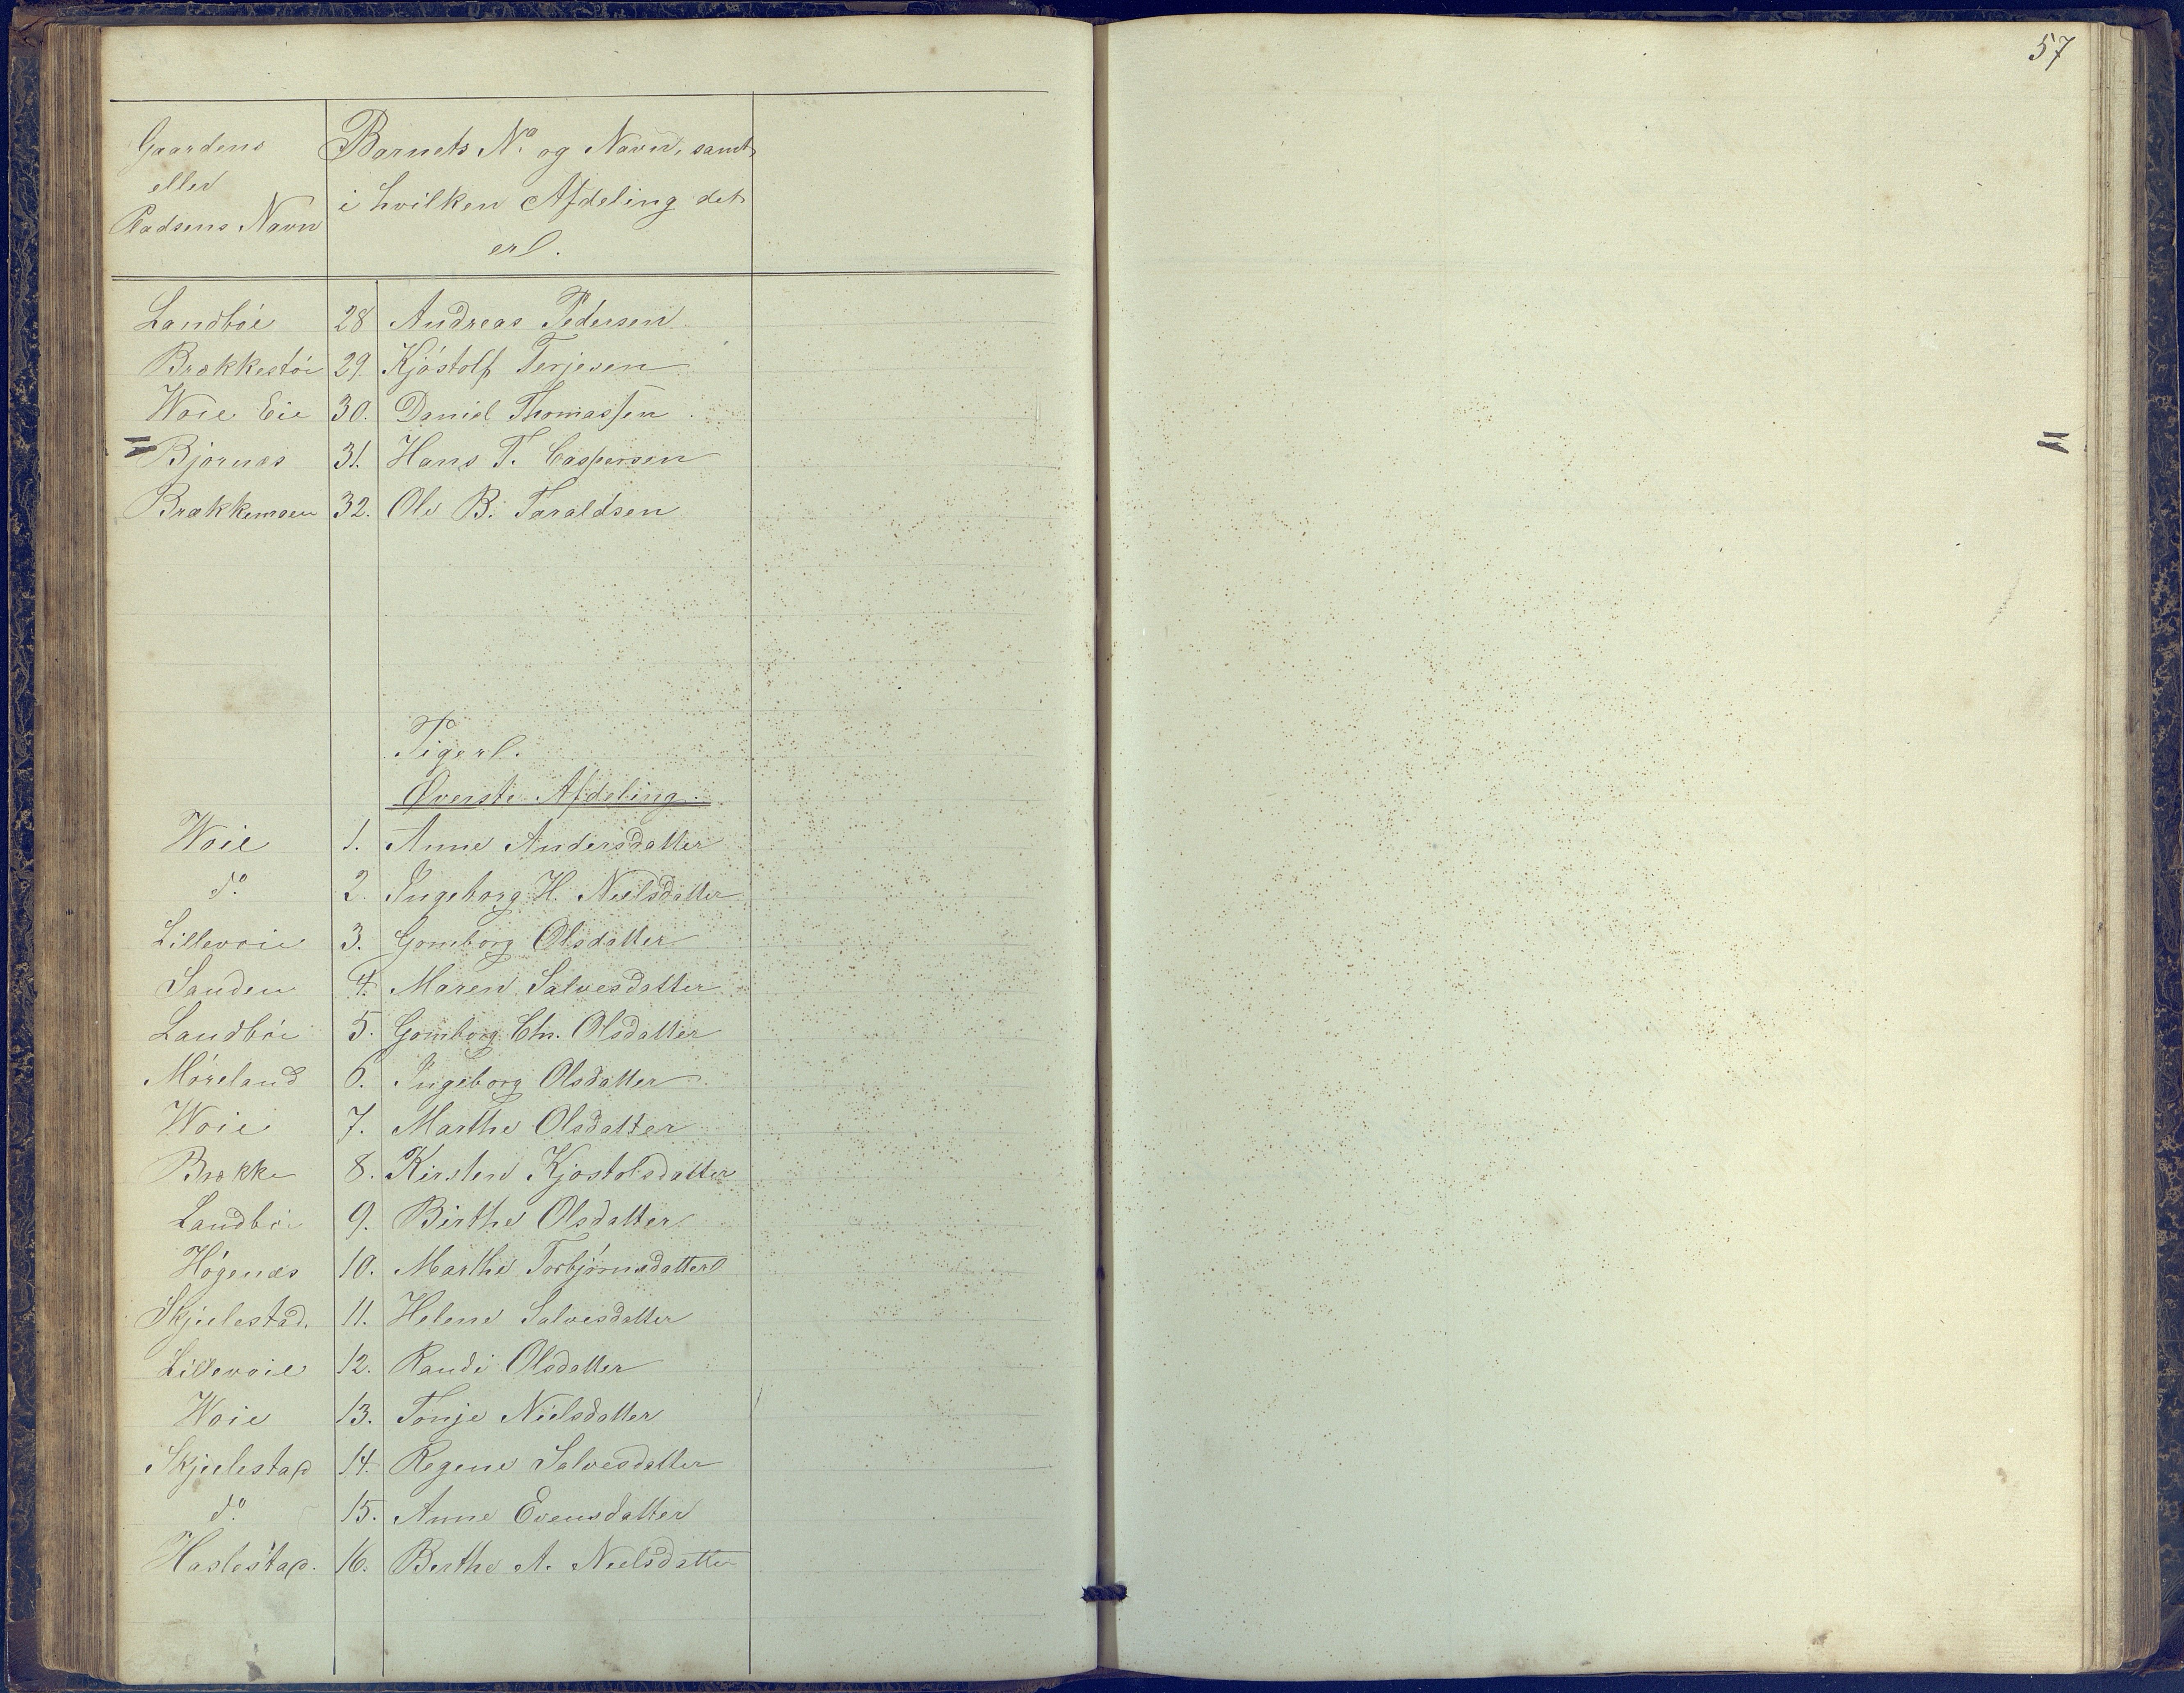 57
Gaardens
eller
Pladsens Navn
Barnets No og Navn, samt
i hvilken Afdeling det
er.
Landbøe 28 Andreas Pedersen
Brækkestøi 29. Kjøstolf Terjesen
Woie Eie 30. Daniel Thomassen
Bjørnæs 31. Hans T. Caspersen
Brækkemoen 32. Ole B. Taraldsen
Piger.
Øverste Afdeling.
Woie 1. Anne Andersdatter
do 2. Ingeborg H. Nielsdatter
Lillevoie 3. Gomborg Olsdatter
Sanden 4. Maren Salvesdatter
Landbøe 5. Gomborg Chr. Olsdatter
Møreland 6. Ingeborg Olsdatter
Woie 7. Marthe Olsdatter
Brække 8. Kirsten Kjøstolsdatter
Landbøe 9. Birthe Olsdatter
Høgenæs 10. Marthe Torbjørnsdatter
Skjelestad. 11. Helene Salvesdatter
Lillevoie 12. Randi Olsdatter
Woie 13. Tonje Nielsdatter
Skjelestad 14. Regene Salvesdatter
do 15. Anne Evensdatter
Haslestad. 16. Berthe A. Nielsdatter